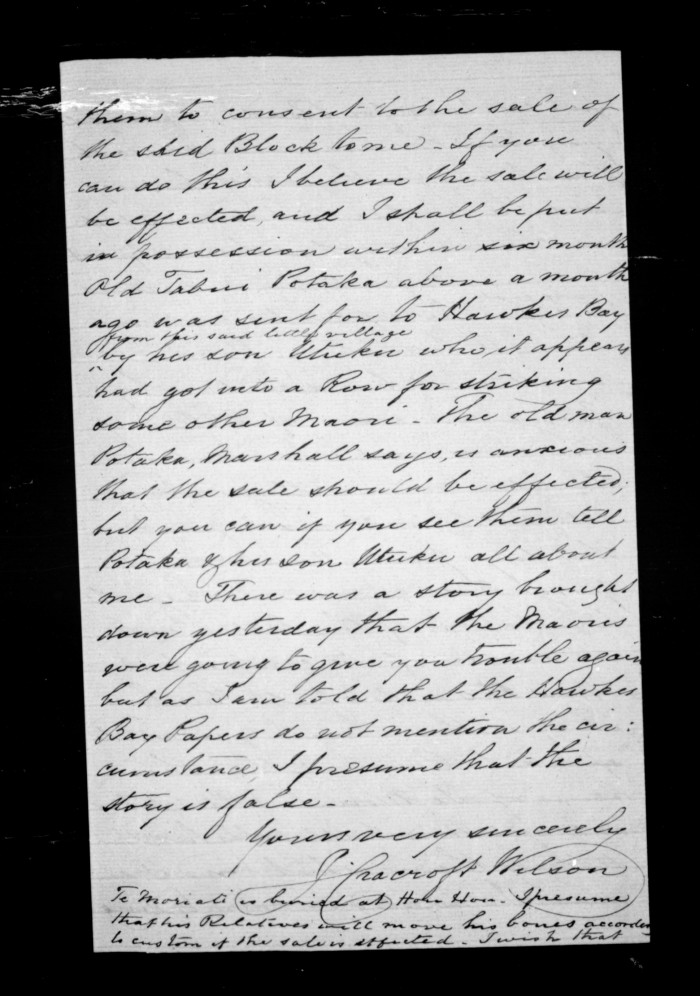 them to consent to the sale of
the said Block to me - If you
can do this I believe the sale will
be effected, and I shall be put
in possession within six month
Old Potaka above a month
ago was sent for to Hawkes Bay
from this said little village
by his son Utiku who, it appears
had got into a Row for striking
some other Maori - The old man
Potaka, Marshall says, is anxious
that the sale should be effected,
but you can if you see them tell
Potaka & his son Utiku all about
me - There was a story brought
down yesterday that the Maoris
were going to give you trouble again
but as I am told that the Hawkes
Bay Papers do not mention the cir:
cumstance, I presume that the
story is false -
Yours very sincerely
J Cracroft Wilson
Te Moriati is buried at Hou Hou. I presume
that his Relatives will move his bones accordg
to custom if the sale is effected - I wish that